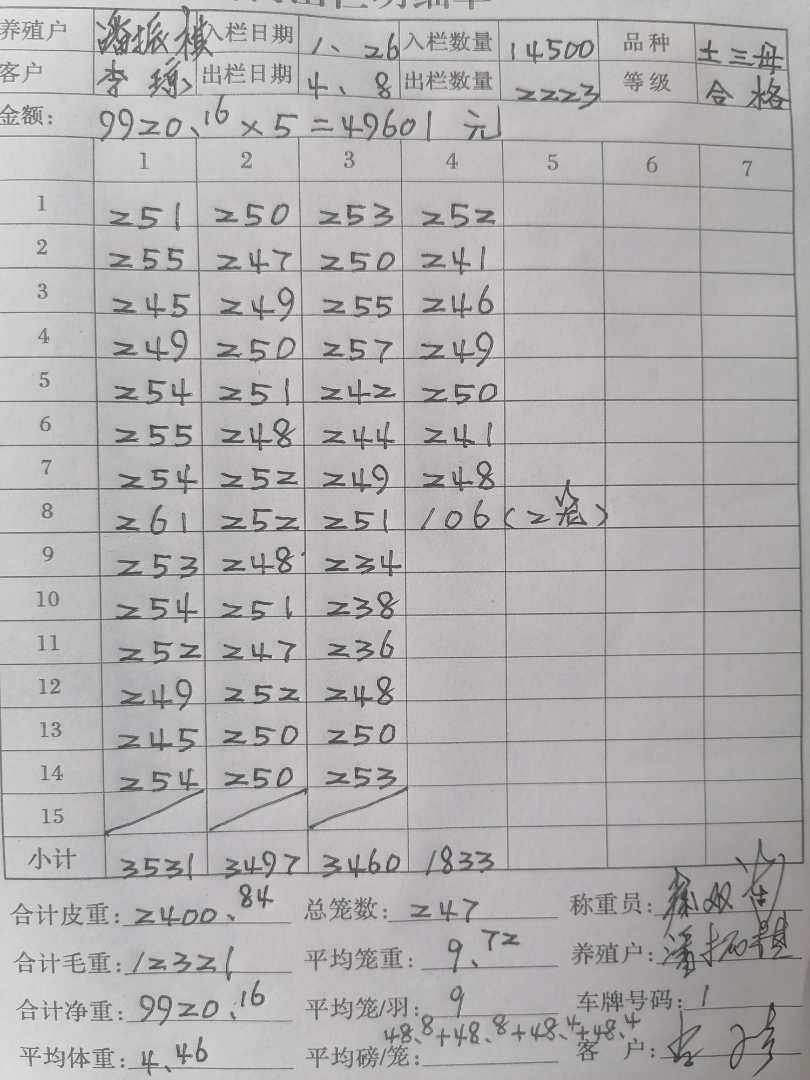 养殖户 潘振横 入栏日期 1、26 入栏数量 14500 品种 土三母
客户 李琼 出栏日期 4、8 出栏数量 2223 等级 合格
金额: 9920.16×5=49601元
1 2 3 4 5 6 7
1 251 250 253 252
2 255 247 250 241
3 245 249 255 246
4 249 250 257 249
5 254 251 242 250
6 255 248 244 241
7 254 252 249 248
8 261 252 251 106(2笼)
9 253 248 234
10 254 251 238
11 252 247 236
12 249 252 248
13 245 250 250
14 254 250 253
15
小计 3531 3497 3460 1833
合计皮重: 2400.84 总笼数: 247 称重员:
合计毛重: 12321 平均笼重: 9.72 养殖户:
合计净重: 9920.16 平均笼/羽: 9 车牌号码: 1
平均体重: 4.46 平均磅/笼: 48.8+48.8+48.4+48.4 客户: